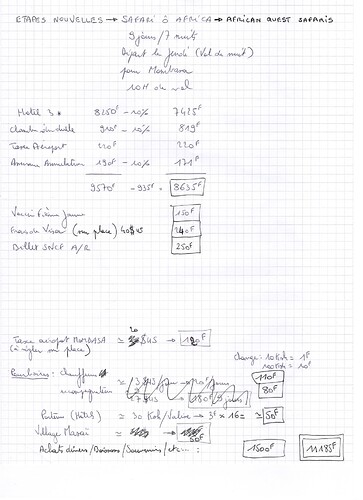 ETAPES NOUVELLES → SAFARI Ô AFRICA → AFRICAN QUEST SAFARIS
9 jours/7 nuits
Départ le Jeudi (Vol de nuit)
pour Mombasa
10H de vol
Hotel 3* 8250F - 10% 7425F
Chambre individuelle 910F - 10% 819F
Taxes Aéroport 220F 220F
Assurance Annulation 190F - 10% 171F
9570F - 935F = 8635F
Vaccin Fièvre Jaune 150F
Frais de Visa (sur place) 40$US 240F
Billet SNCF A/R 250F
Taxe aéroport MOMBASA ≃ 20 $US → 120F
(à régler sur place)
Change: 10 Ksh = 1F
100 Ksh = 10F
Pourboires: chauffeur 110F
80F
Porteur (Hôtel) ≃ 30 Ksh/Valise → 3F x 16 = ≃ 50F
Village Masaï ≃ 50F
Achats divers/Boissons/Souvenirs/etc...: 1500F 11185F